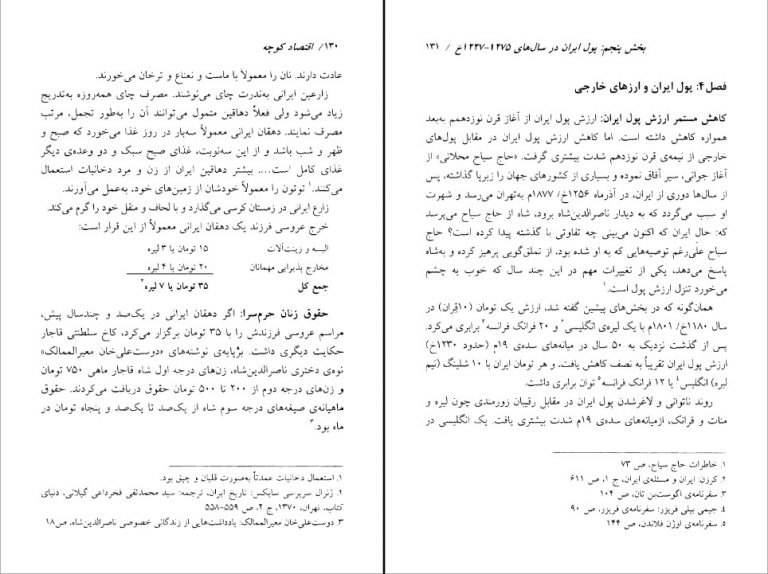 ۱۳۰/ اقتصاد کوچه
عادت دارند. نان را معمولاً با ماست و نعناع و ترخان می‌خورند.
زارعین ایرانی به‌ندرت چای می‌نوشند. مصرف چای همه‌روزه به‌تدریج
زیاد می‌شود ولی فعلاً دهاقین متمول می‌توانند آن را به‌طور تجمل، مرتب
مصرف نمایند. دهقان ایرانی معمولاً سه‌بار در روز غذا می‌خورد که صبح و
ظهر و شب باشد و از این سه‌نوبت، غذای صبح سبک و دو وعده‌ی دیگر
غذای کامل است.... بیشتر دهاقین ایران از زن و مرد دخانیات استعمال
می‌کنند.۱ توتون را معمولاً خودشان از زمین‌های خود، به‌عمل می‌آورند.
زارع ایرانی در زمستان کرسی می‌گذارد و با لحاف و منقل خود را گرم می‌کند.
خرج عروسی فرزند یک دهقان ایرانی معمولاً از این قرار است:
البسه و زینت‌آلات ۱۵ تومان یا ۳ لیره
مخارج پذیرایی مهمانان ۲۰ تومان یا ۴ لیره
جمع کل ۳۵ تومان یا ۷ لیره۲
حقوق زنان حرم‌سرا: اگر دهقان ایرانی در یک‌صد و چندسال پیش،
مراسم عروسی فرزندش را با ۳۵ تومان برگزار می‌کرد، کاخ سلطنتی قاجار
حکایت دیگری داشت. برپایه‌ی نوشته‌های «دوست‌علی‌خان معیرالممالک»
نوه‌ی دختری ناصرالدین‌شاه، زن‌های درجه اول شاه قاجار ماهی ۷۵۰ تومان
و زن‌های درجه دوم از ۲۰۰ تا ۵۰۰ تومان حقوق دریافت می‌کردند. حقوق
ماهیانه‌ی صیغه‌های درجه سوم شاه از یک‌صد تا یک‌صد و پنجاه تومان در
ماه بود.۳
۱. استعمال دخانیات عمدتاً به‌صورت قلیان و چپق بود.
۲. ژنرال سرپرسی سایکس: تاریخ ایران، ترجمه: سید محمدتقی فخرداعی گیلانی، دنیای
کتاب، تهران، ۱۳۷۰، ج ۲، ص ۵۵۹-۵۵۸
۳. دوست‌علی‌خان معیرالممالک: یادداشت‌هایی از زندگانی خصوصی ناصرالدین‌شاه، ص۱۸
بخش پنجم: پول ایران در سال‌های ۱۲۷۵-۱۲۲۷خ / ۱۳۱
فصل۴: پول ایران و ارزهای خارجی
کاهش مستمر ارزش پول ایران: ارزش پول ایران از آغاز قرن نوزدهم به‌بعد
همواره کاهش داشته است. اما کاهش ارزش پول ایران در مقابل پول‌های
خارجی از نیمه‌ی قرن نوزدهم شدت بیشتری گرفت. «حاج سیاح محلاتی» از
آغاز جوانی، سیر آفاق نموده و بسیاری از کشورهای جهان را زیرپا گذاشته، پس
از سال‌ها دوری از ایران، در آذرماه ۱۲۵۶خ/ ۱۸۷۷م به‌تهران می‌رسد و شهرت
او سبب می‌گردد که به دیدار ناصرالدین‌شاه برود، شاه از حاج سیاح می‌پرسد
که: حال ایران که اکنون می‌بینی چه تفاوتی با گذشته پیدا کرده است؟ حاج
سیاح علی‌رغم توصیه‌هایی که به او شده بود، از تملق‌گویی پرهیز کرده و به‌شاه
پاسخ می‌دهد، یکی از تغییرات مهم در این چند سال که خوب به چشم
می‌خورد تنزل ارزش پول است.۱
همان‌گونه که در بخش‌های پیشین گفته شد، ارزش یک تومان (۱۰قران) در
سال ۱۱۸۰خ/ ۱۸۰۱م با یک لیره‌ی انگلیسی۲ و ۲۰ فرانک فرانسه۳ برابری می‌کرد.
پس از گذشت نزدیک به ۵۰ سال در میانه‌های سده‌ی ۱۹م (حدود ۱۲۳۰خ)
ارزش پول ایران تقریباً به نصف کاهش یافت، و هر تومان ایران با ۱۰ شلینگ (نیم
لیره) انگلیس۴ یا ۱۲ فرانک فرانسه۵ توان برابری داشت.
روند ناتوانی و لاغرشدن پول ایران در مقابل رقیبان زورمندی چون لیره و
منات و فرانک، ازمیانه‌های سده‌ی ۱۹م شدت بیشتری یافت. یک انگلیسی در
۱. خاطرات حاج سیاح، ص ۷۳
۲. کرزن: ایران و مسئله‌ی ایران، ج ۱، ص ۶۱۱
۳. سفرنامه‌ی اگوست‌بن تان، ص ۱۰۴
۴. جیمی بیلی فریزر: سفرنامه‌ی فریزر، ص ۹۰
۵. سفرنامه‌ی اوژن فلاندن، ص ۱۴۴